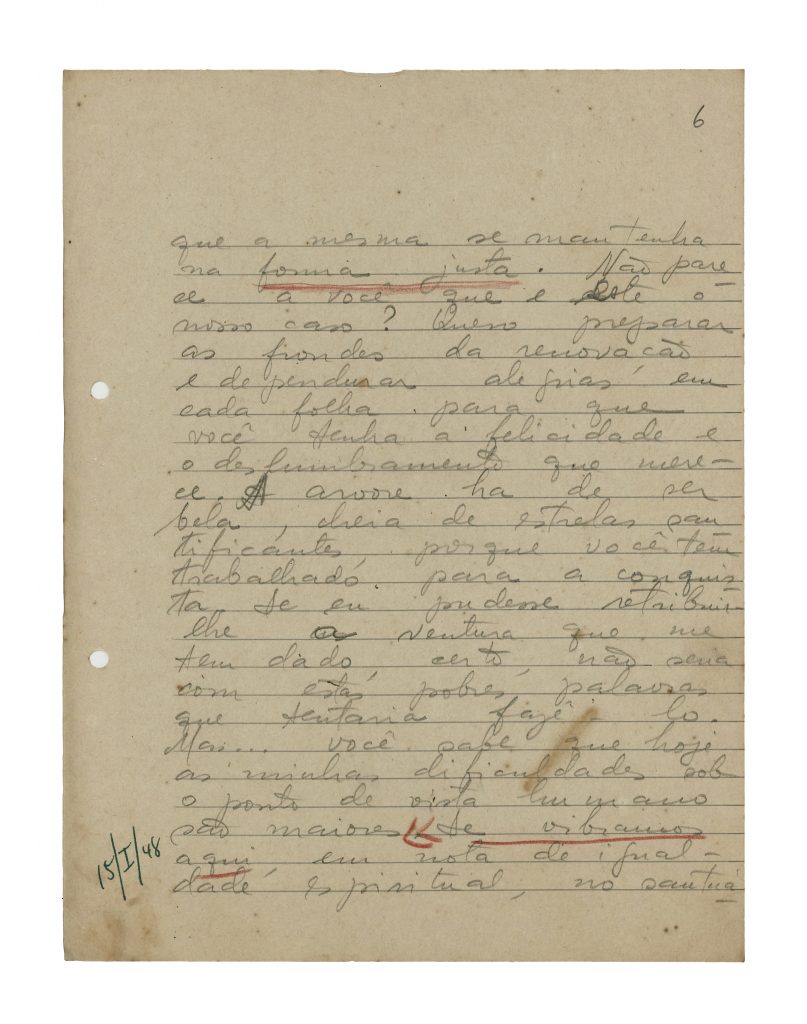 6
que a mesma se mantenha
na forma justa. Não pare
ce a você que e este o
nosso caso? Quero preparar
as frondes da renovação
e dependurar alegrias, em
cada folha para que
você tenha a felicidade e
o deslumbramento que mere-
ce. A arvore ha de ser
bela, cheia de estrelas san
tificantes porque você tem
trabalhado para a conquis
ta. Se eu pudesse retribuir-
lhe a ventura que me
tem dado, certo, não seria
com estas pobres palavras
que tentaria fazê-lo.
Mas... você sabe que hoje
as minhas dificuldades sob
o ponto de vista humano
são maiores Se vibramos
aqui, em nota de igual-
dade espiritual, no santuá
15/I/48